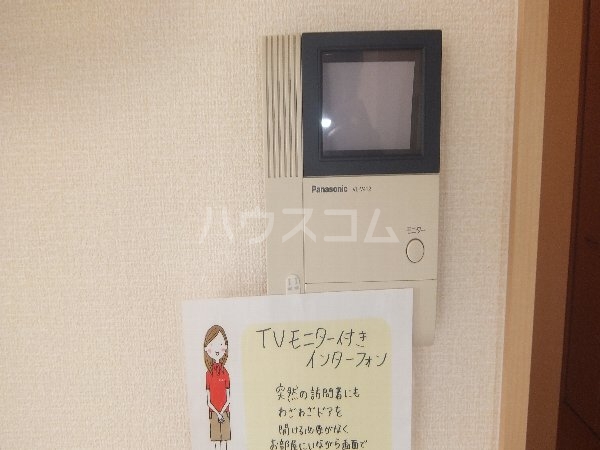 Panasonic
モニター
ハウスコム
TVモニター付き
インターフォン
突然の訪問者にも
わざわざドアを
開ける必要がなく
お部屋にいながら画面で